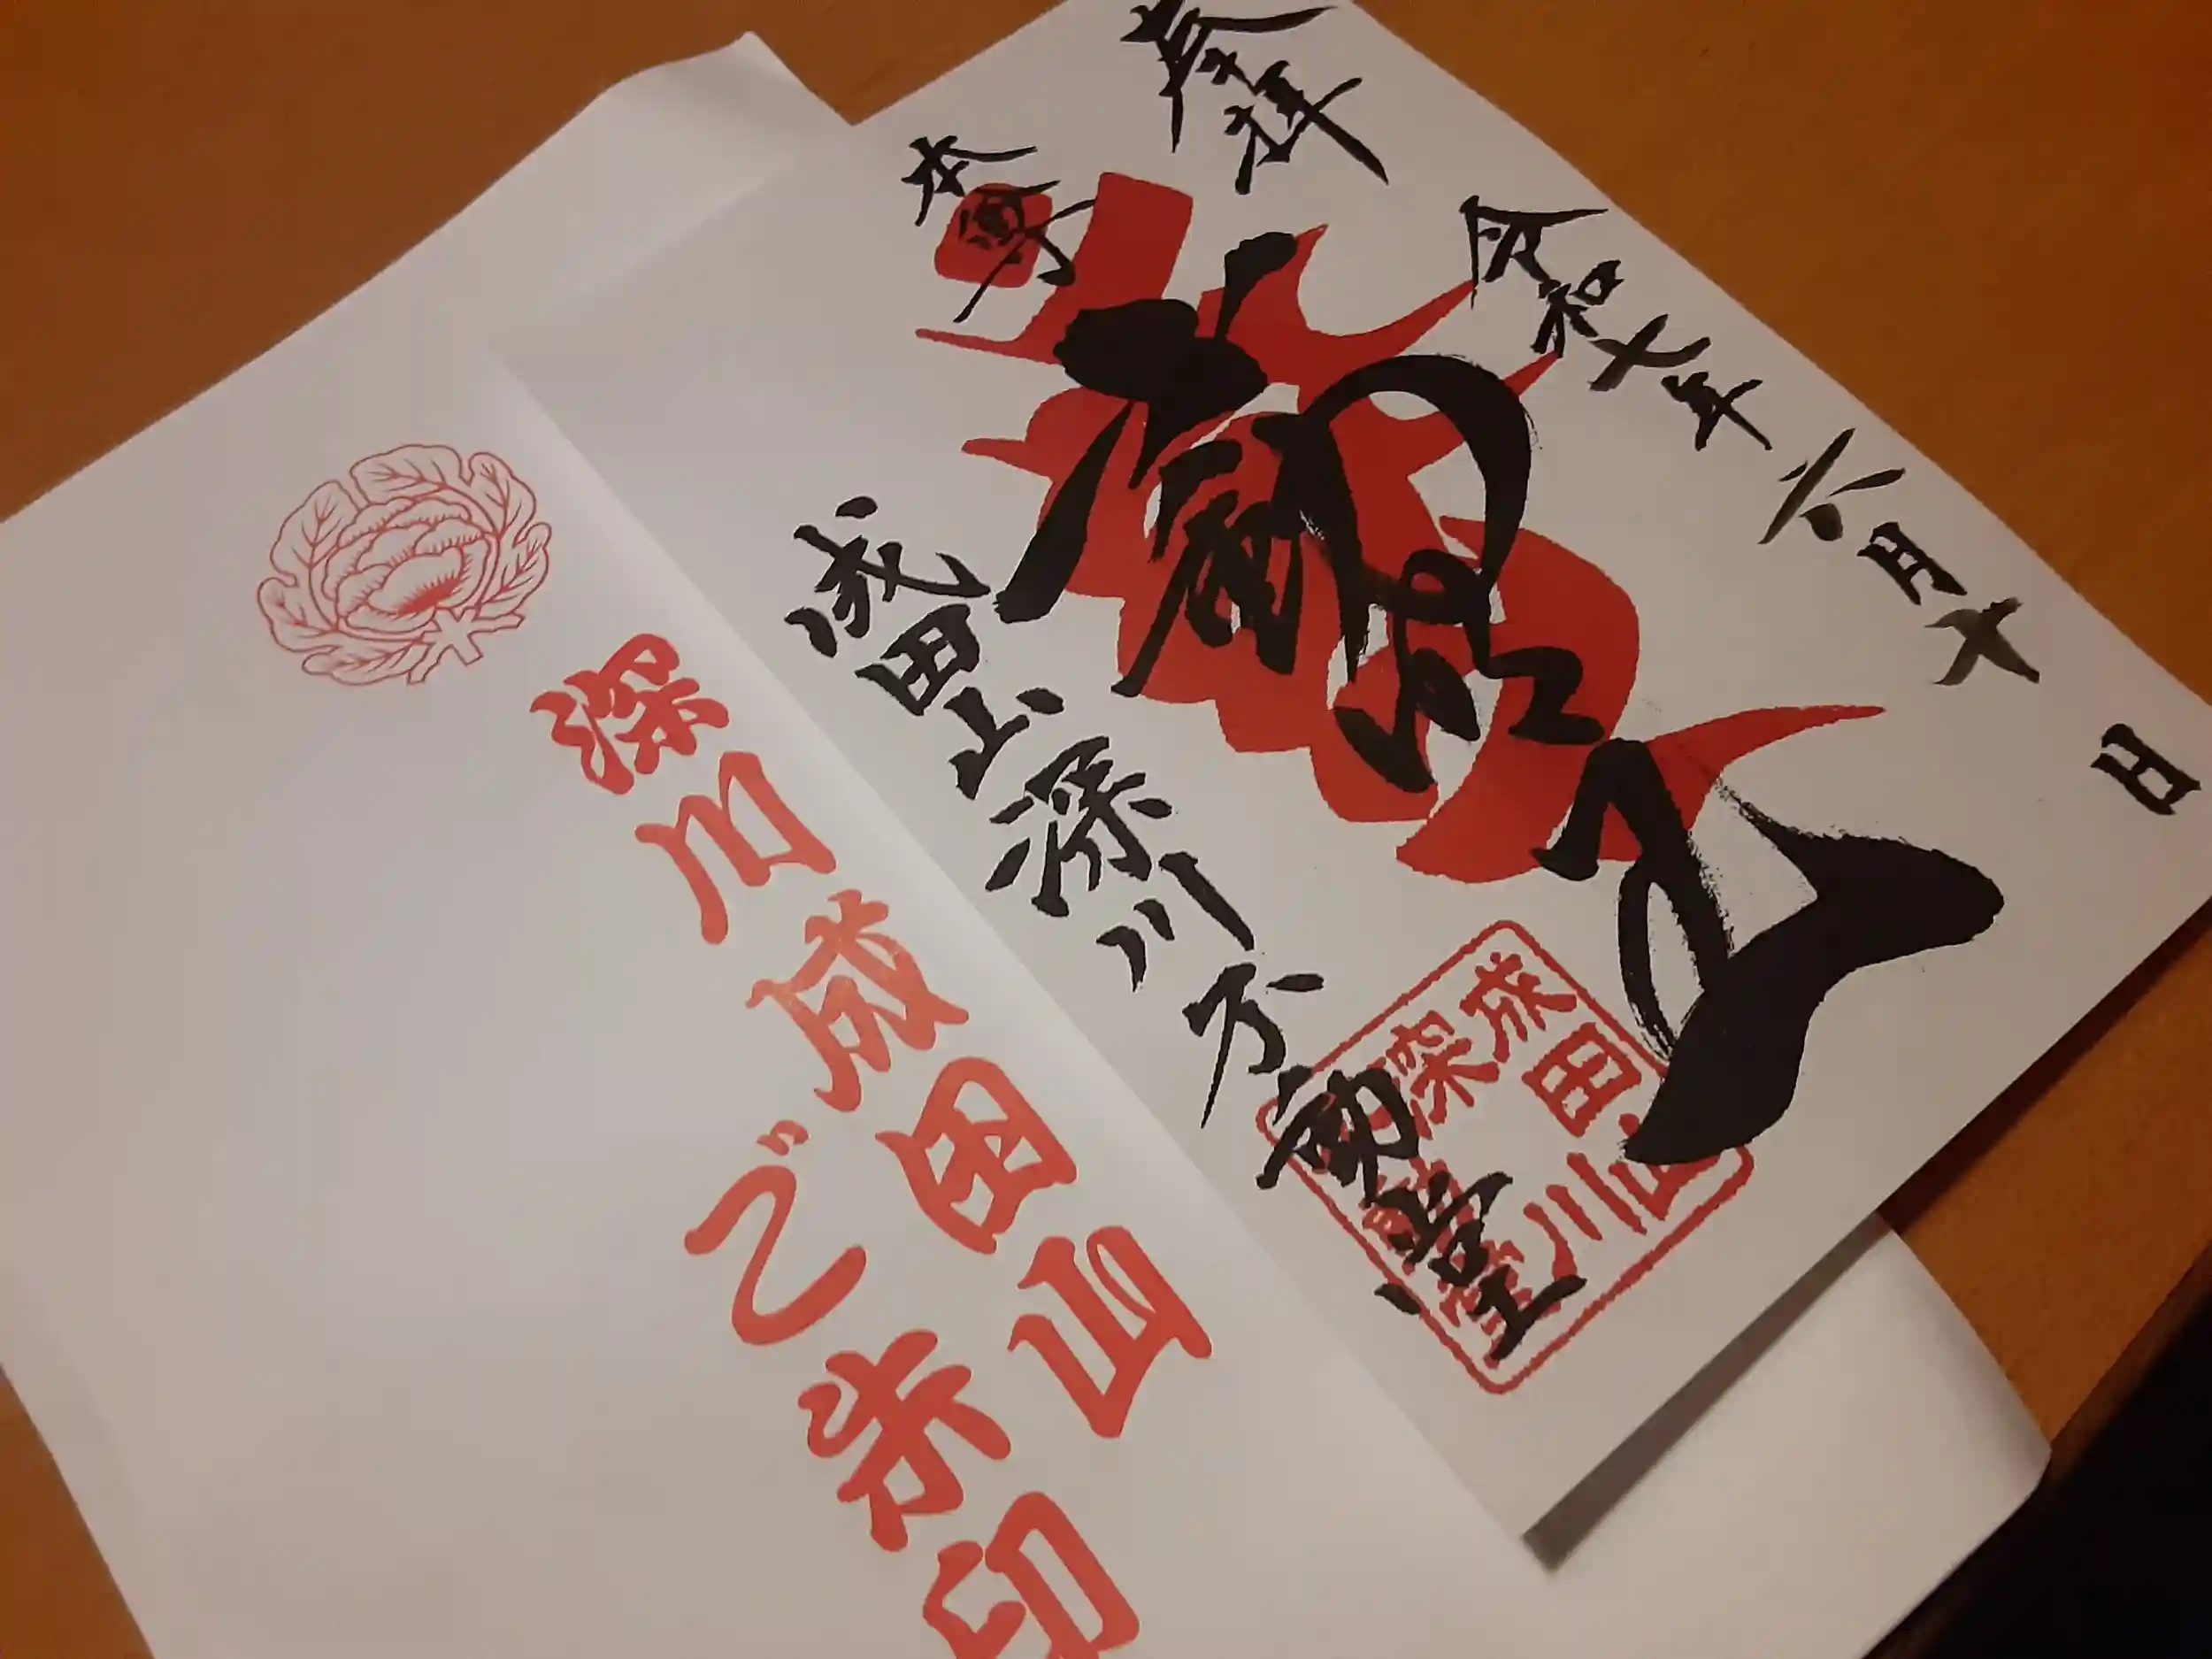 奉拝 令和七年六月十日
本尊
不動明王
成田山深川不動堂
成田山
深川
深川成田山
ご朱印